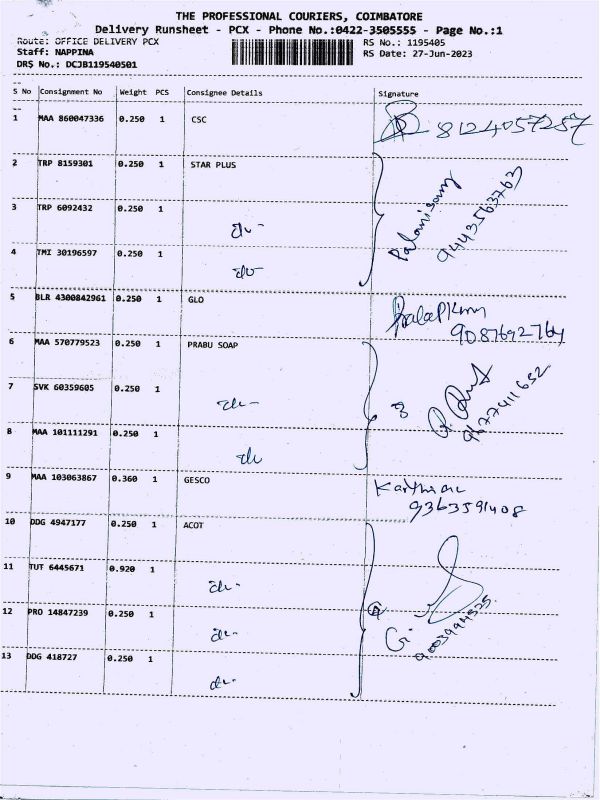 THE PROFESSIONAL COURIERS, COIMBATORE
Delivery Runsheet - PCX - Phone No.:0422-3505555 - Page No.:1
Route: OFFICE DELIVERY PCX RS No.: 1195405
Staff: NAPPINA RS Date: 27-Jun-2023
DRS No.: DCJB119540501
S No Consignment No Weight PCS Consignee Details Signature
1 MAA 860047336 0.250 1 CSC 8124057257
2 TRP 8159301 0.250 1 STAR PLUS
3 TRP 6092432 0.250 1 Palanisamy
4 TMI 30196597 0.250 1 9443563763
5 BLR 4300842961 0.250 1 GLO
9087692764
6 MAA 570779523 0.250 1 PRABU SOAP
7 SVK 60359605 0.250 1 3
8 MAA 101111291 0.250 1 9677411652
9 MAA 103063867 0.360 1 GESCO
9363591408
10 DDG 4947177 0.250 1 ACOT
11 TUT 6445671 0.920 1
12 PRO 14847239 0.250 1 4
13 DDG 418727 0.250 1